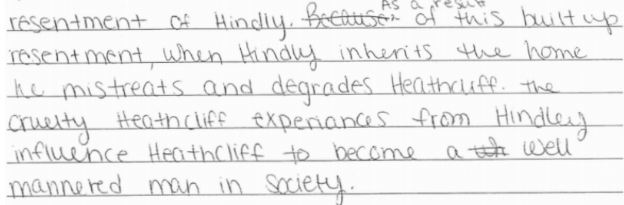 resentment of Hindly. Because As a result of this built up
resentment, when Hindly inherits the home
he mistreats and degrades Heathcliff. the
cruelty Heathcliff experiances from Hindley
influence Heathcliff to become a well
mannered man in society.